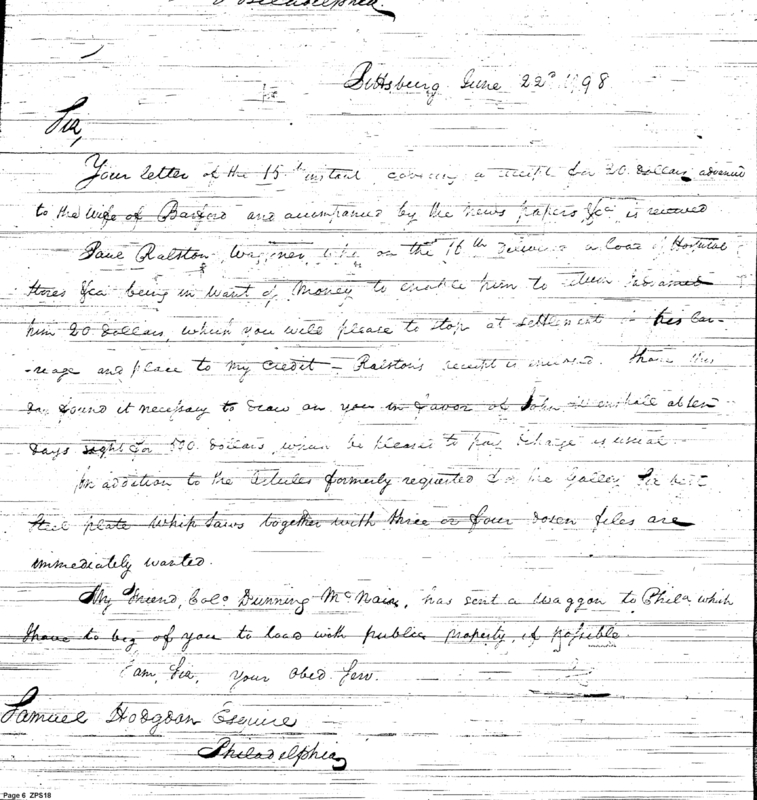 Philadelphia.
Pittsburg June 22d 1798
Sir,
Your letter of the 15th instant covering a receipt for 20 dollars advanced
to the wife of and accompanied by the news papers &ca is received
Paul Ralston, Waggoner, who on the 16th a load of Hospital
Stores &ca being in want of Money to enable him to return I advanced
him 20 dollars, which you will please to stop at settlement his car-
-reage and place to my credit - Ralston's receipt is inclosed. I have this
day found it necessary to draw on you in favor of John at ten
days sight for dollars which be pleased to pay & charge as usual
In addition to the Articles formerly requested for the Galley Six best
Steel plate whip Saws together with three or four dozen files are
immediately wanted.
My Friend, Colo. Dunning McNair, has sent a Waggon to Phila which
I have to beg of you to load with public property, if possible.
I am, Sir, your Obed. Serv.
Samuel Hodgdon Esquire
Philadelphia
Page 6 ZPS18